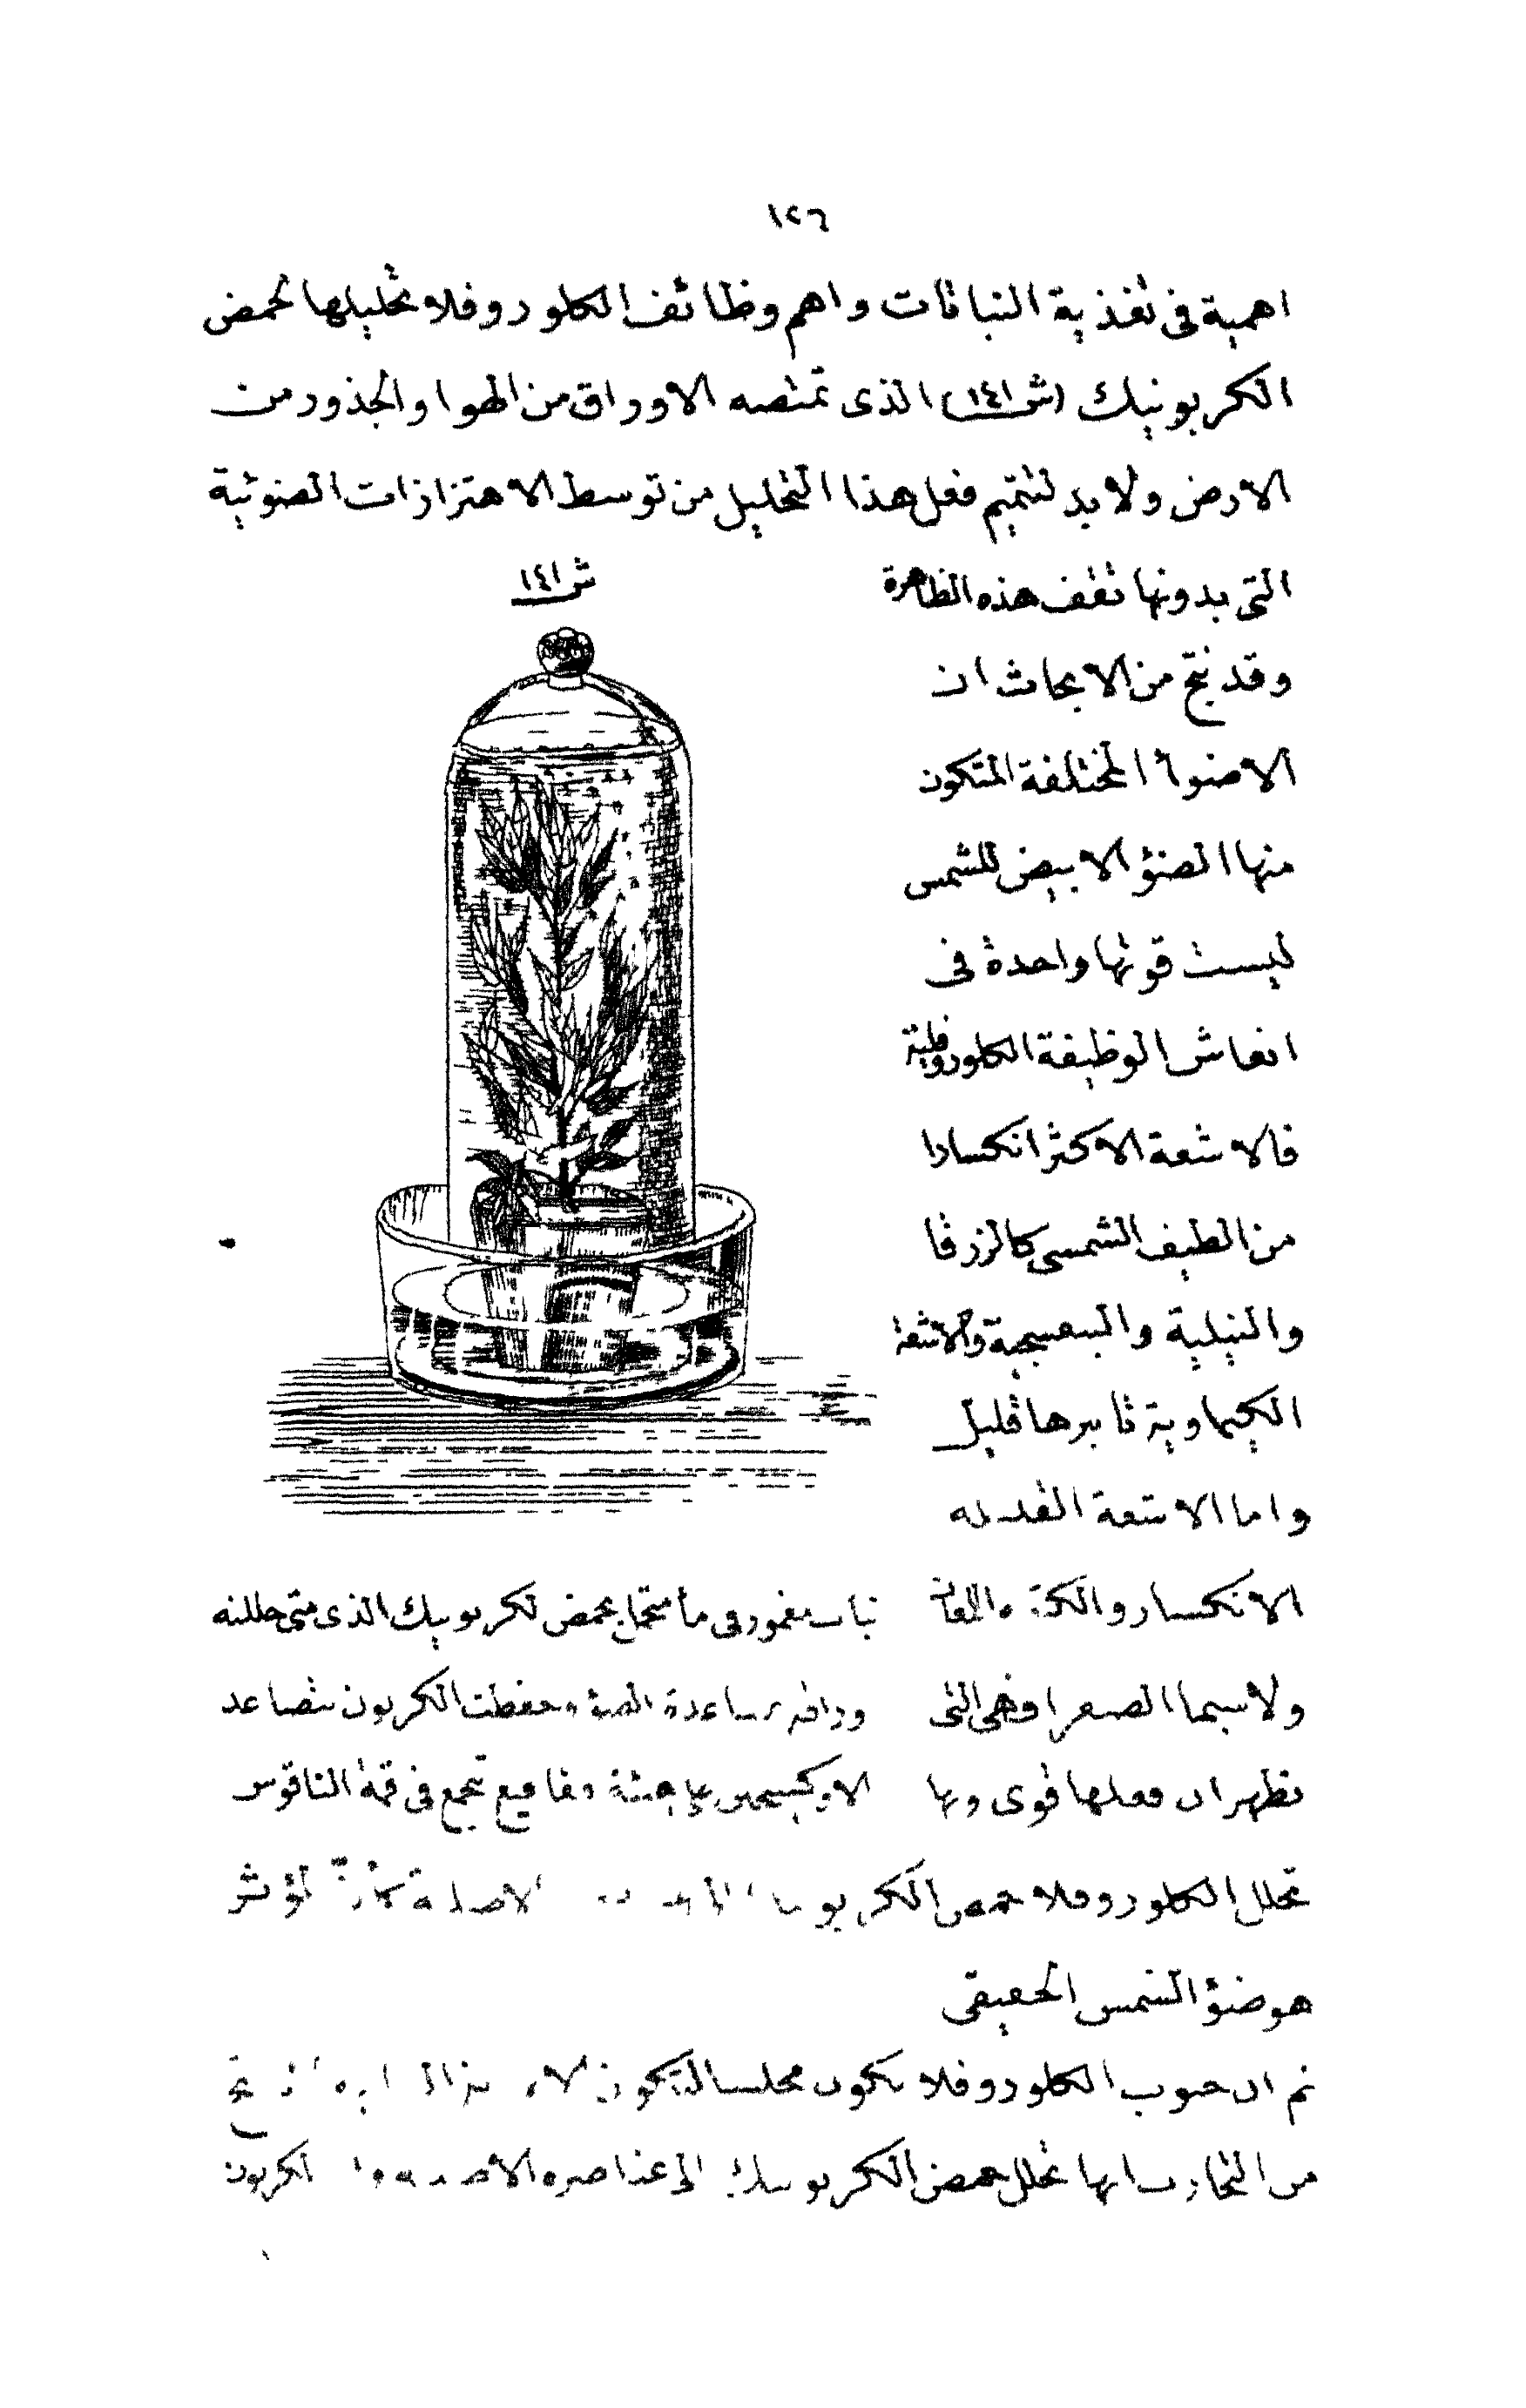 ١٢٦
اهمية فى تغذية النباتات واهم وظائف الكلوروفلا تحليلها لحمض
الكربونيك (ش١٤١) الذى تمتصه الاوراق من الهوا والجذور من
الارض ولا بد لتتميم فعل هذا التحليل من توسط الاهتزازات الضوئية
التى بدونها تقف هذه الظاهرة
وقد نتج من الابحاث ان
الاضوأ المختلفة المتكون
منها الضوٴ الابيض للشمس
ليست قوتها واحدة فى
انعاش الوظيفة الكلوروفلية
فالاشعة الاكثر انكسارا
من الطيف الشمسى كالزرقا
والنيلية والبنفسجية والاشعة
الكيماوية تاثيرها قليل
واما الاشعة القليلة
الانكسار
ولاسيما الصفرا فهى التى
تظهر ان فعلها قوى وبها
تحلل الكلوروفلا حمض الكربو
هو ضوٴ الشمس الحقيقى
ش١٤١
نبات مغمور فى مأ متحمل بحمض لكربونيك الذى متى حللته
وراقه بمساعدة الضوٴ وحفظت الكربون يتصاعد
الاوكسيجين على هيئة فقاقيع تجمع فى قمة الناقوس
لؤثر
ثم ان حبوب الكلوروفلا تكون مجلسا لتكون
من التجارب انها تحلل حمض الكربونيك الى عناصره الكربون